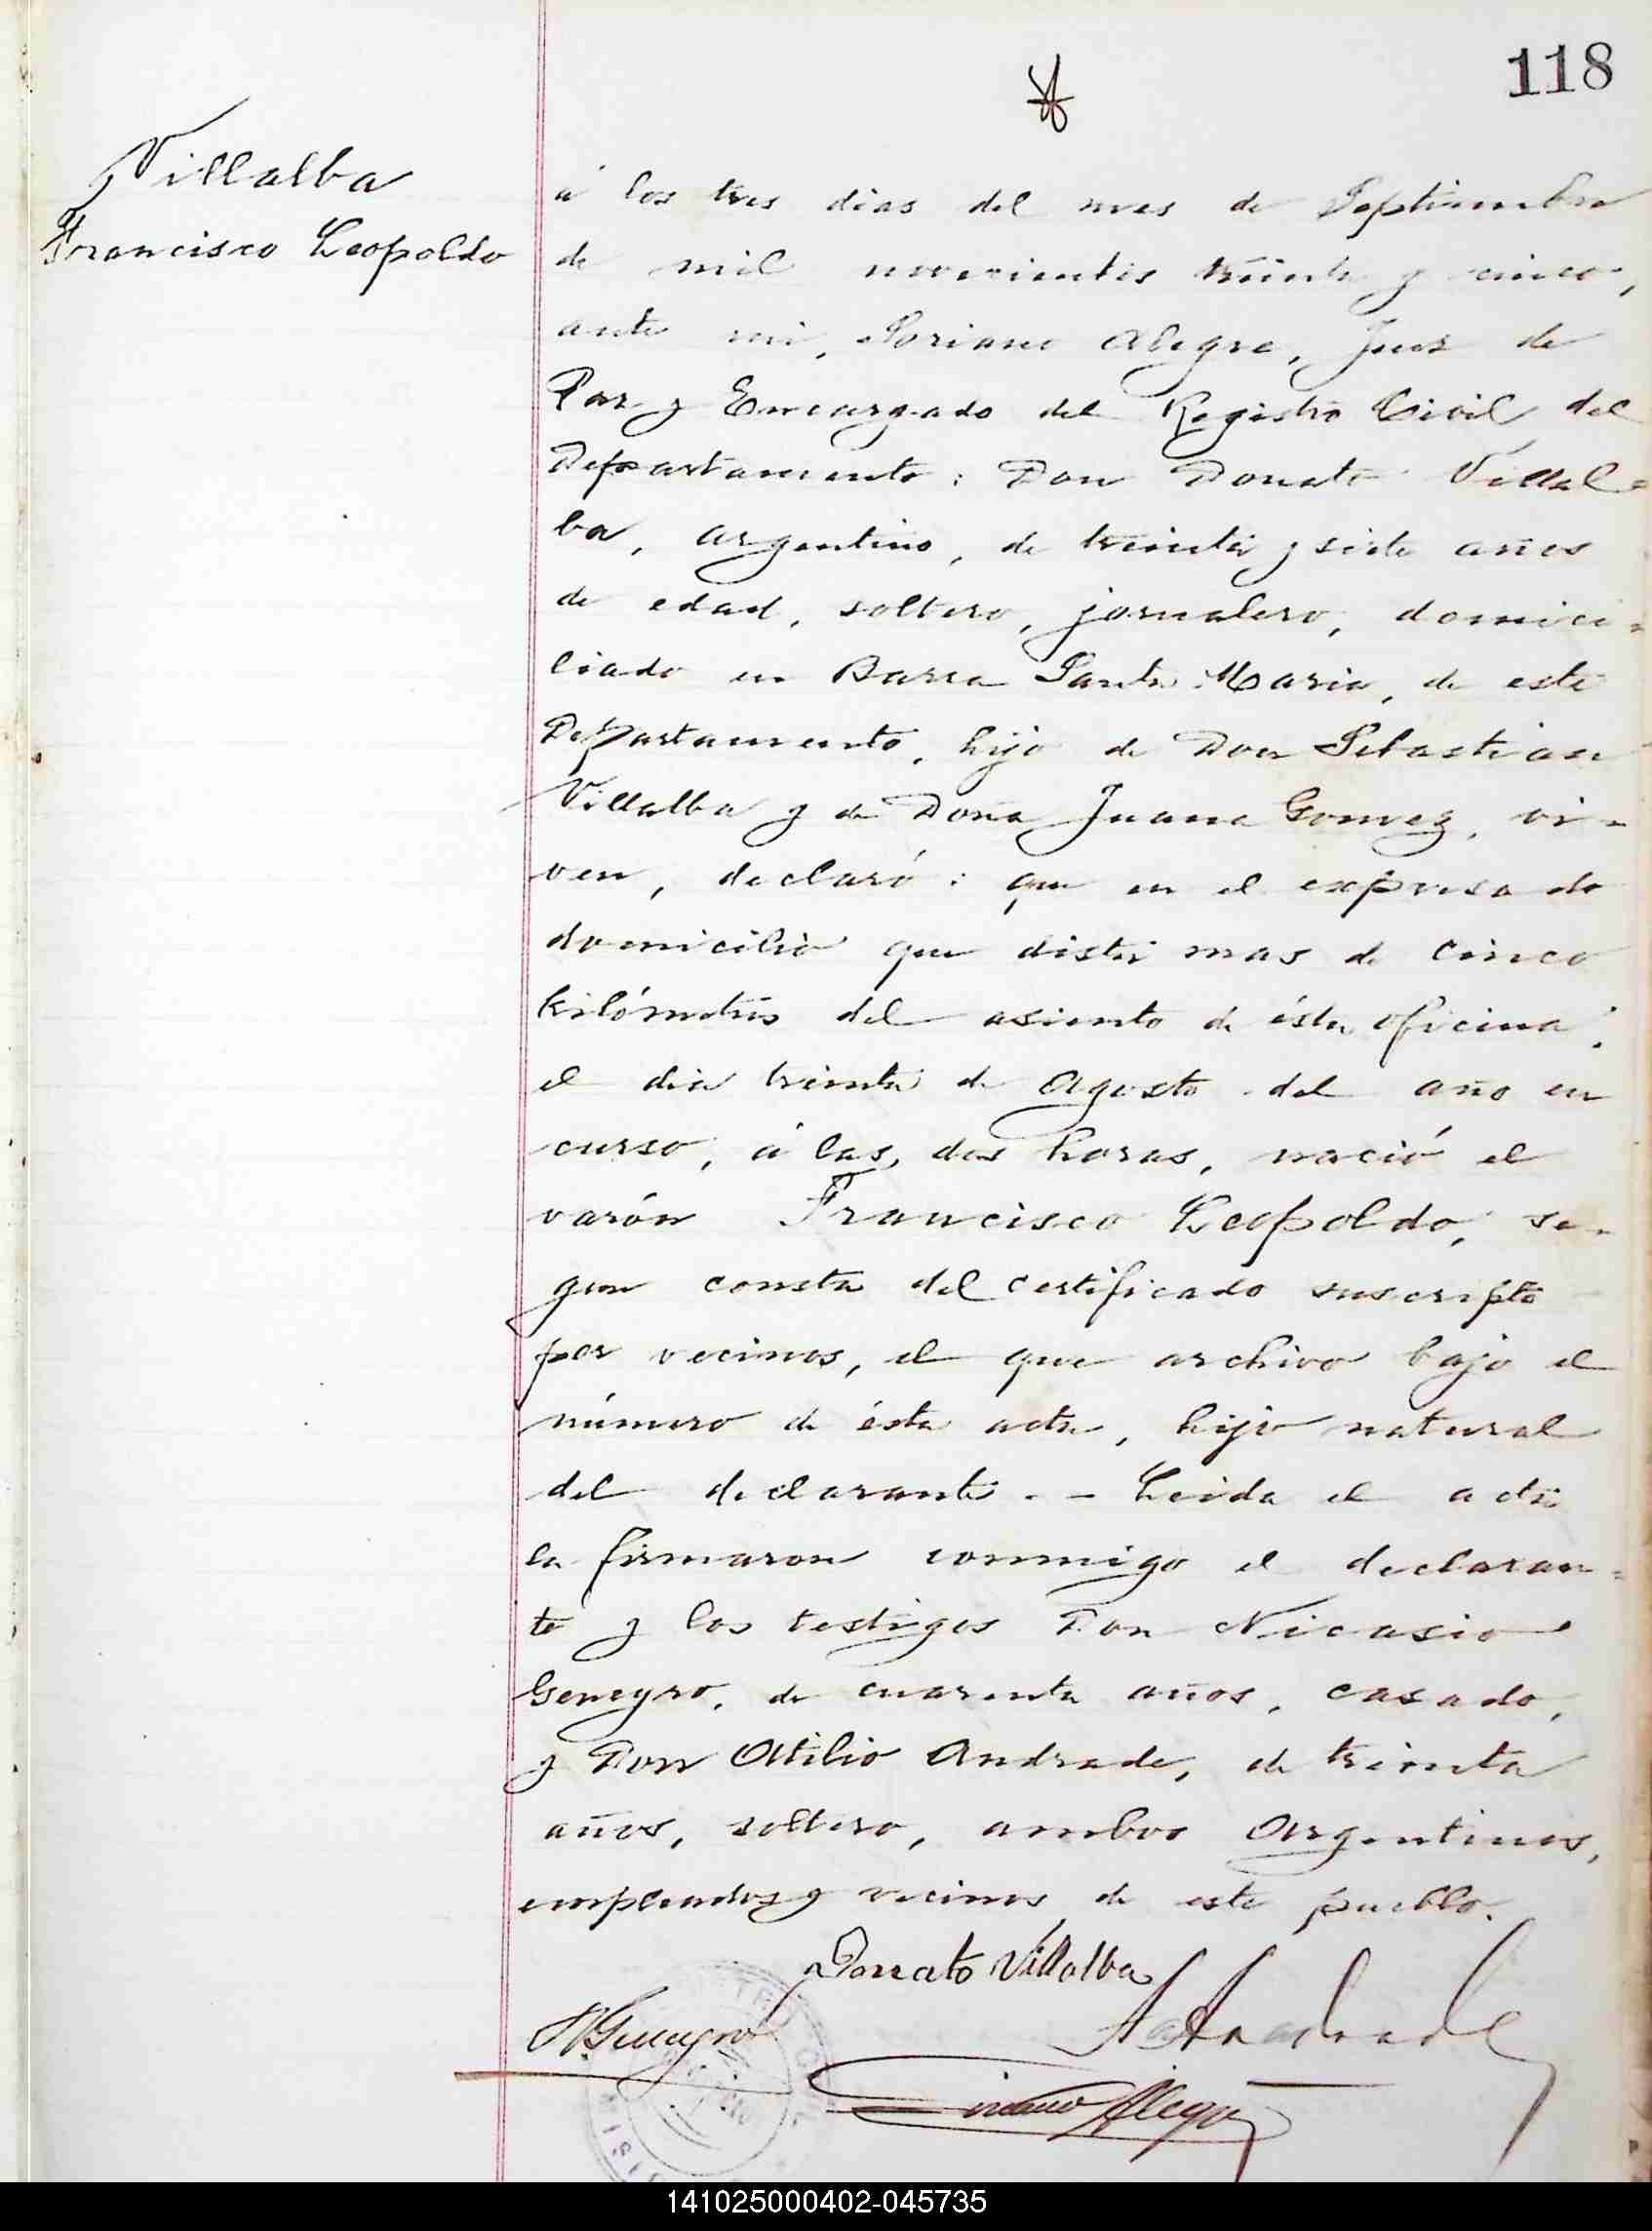 118
Villalba
Francisco Leopoldo
á los tres dias del mes de Septiembre
de mil novecientos treinta y cinco,
ante mi, Soriano Alegre, Juez de
Paz y Encargado del Registro Civil del
Departamento: Don Donato Villal=
ba, argentino, de treinta y siete años
de edad, soltero, jornalero, domici=
liado en Barra Santa Maria, de este
Departamento, hijo de Don Sebastian
Villalba y de Doña Juana Gomez, vi=
ven, declaró: que en el expresado
domicilio que dista mas de cinco
kilómetros del asiento de ésta oficina;
el dia treinta de Agosto del año en
curso, á las, dos horas, nació el
varón Francisco Leopoldo, se-
gun consta del certificado suscripto
por vecinos, el que archivo bajo el
número de ésta acta, hijo natural
del declarante. - Leida el acta
la firmaron conmigo el declaran=
te y los testigos Don Nicasio
Geneyro, de cuarenta años, casado,
y Don Atilio Andrade, de treinta
años, soltero, ambos Argentinos,
empleados y vecinos de este pueblo.
Donato Villalba
N. Geneyro
A. Andrade
Soriano Alegre
141025000402-045735